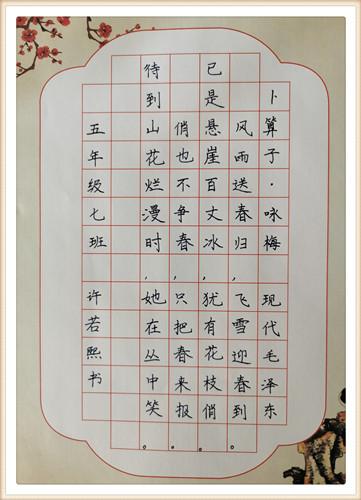 卜算子·咏梅 现代毛泽东
风雨送春归，飞雪迎春到。
已是悬崖百丈冰，犹有花枝俏。
俏也不争春，只把春来报。
待到山花烂漫时，她在丛中笑。
五年级七班 许若熙书